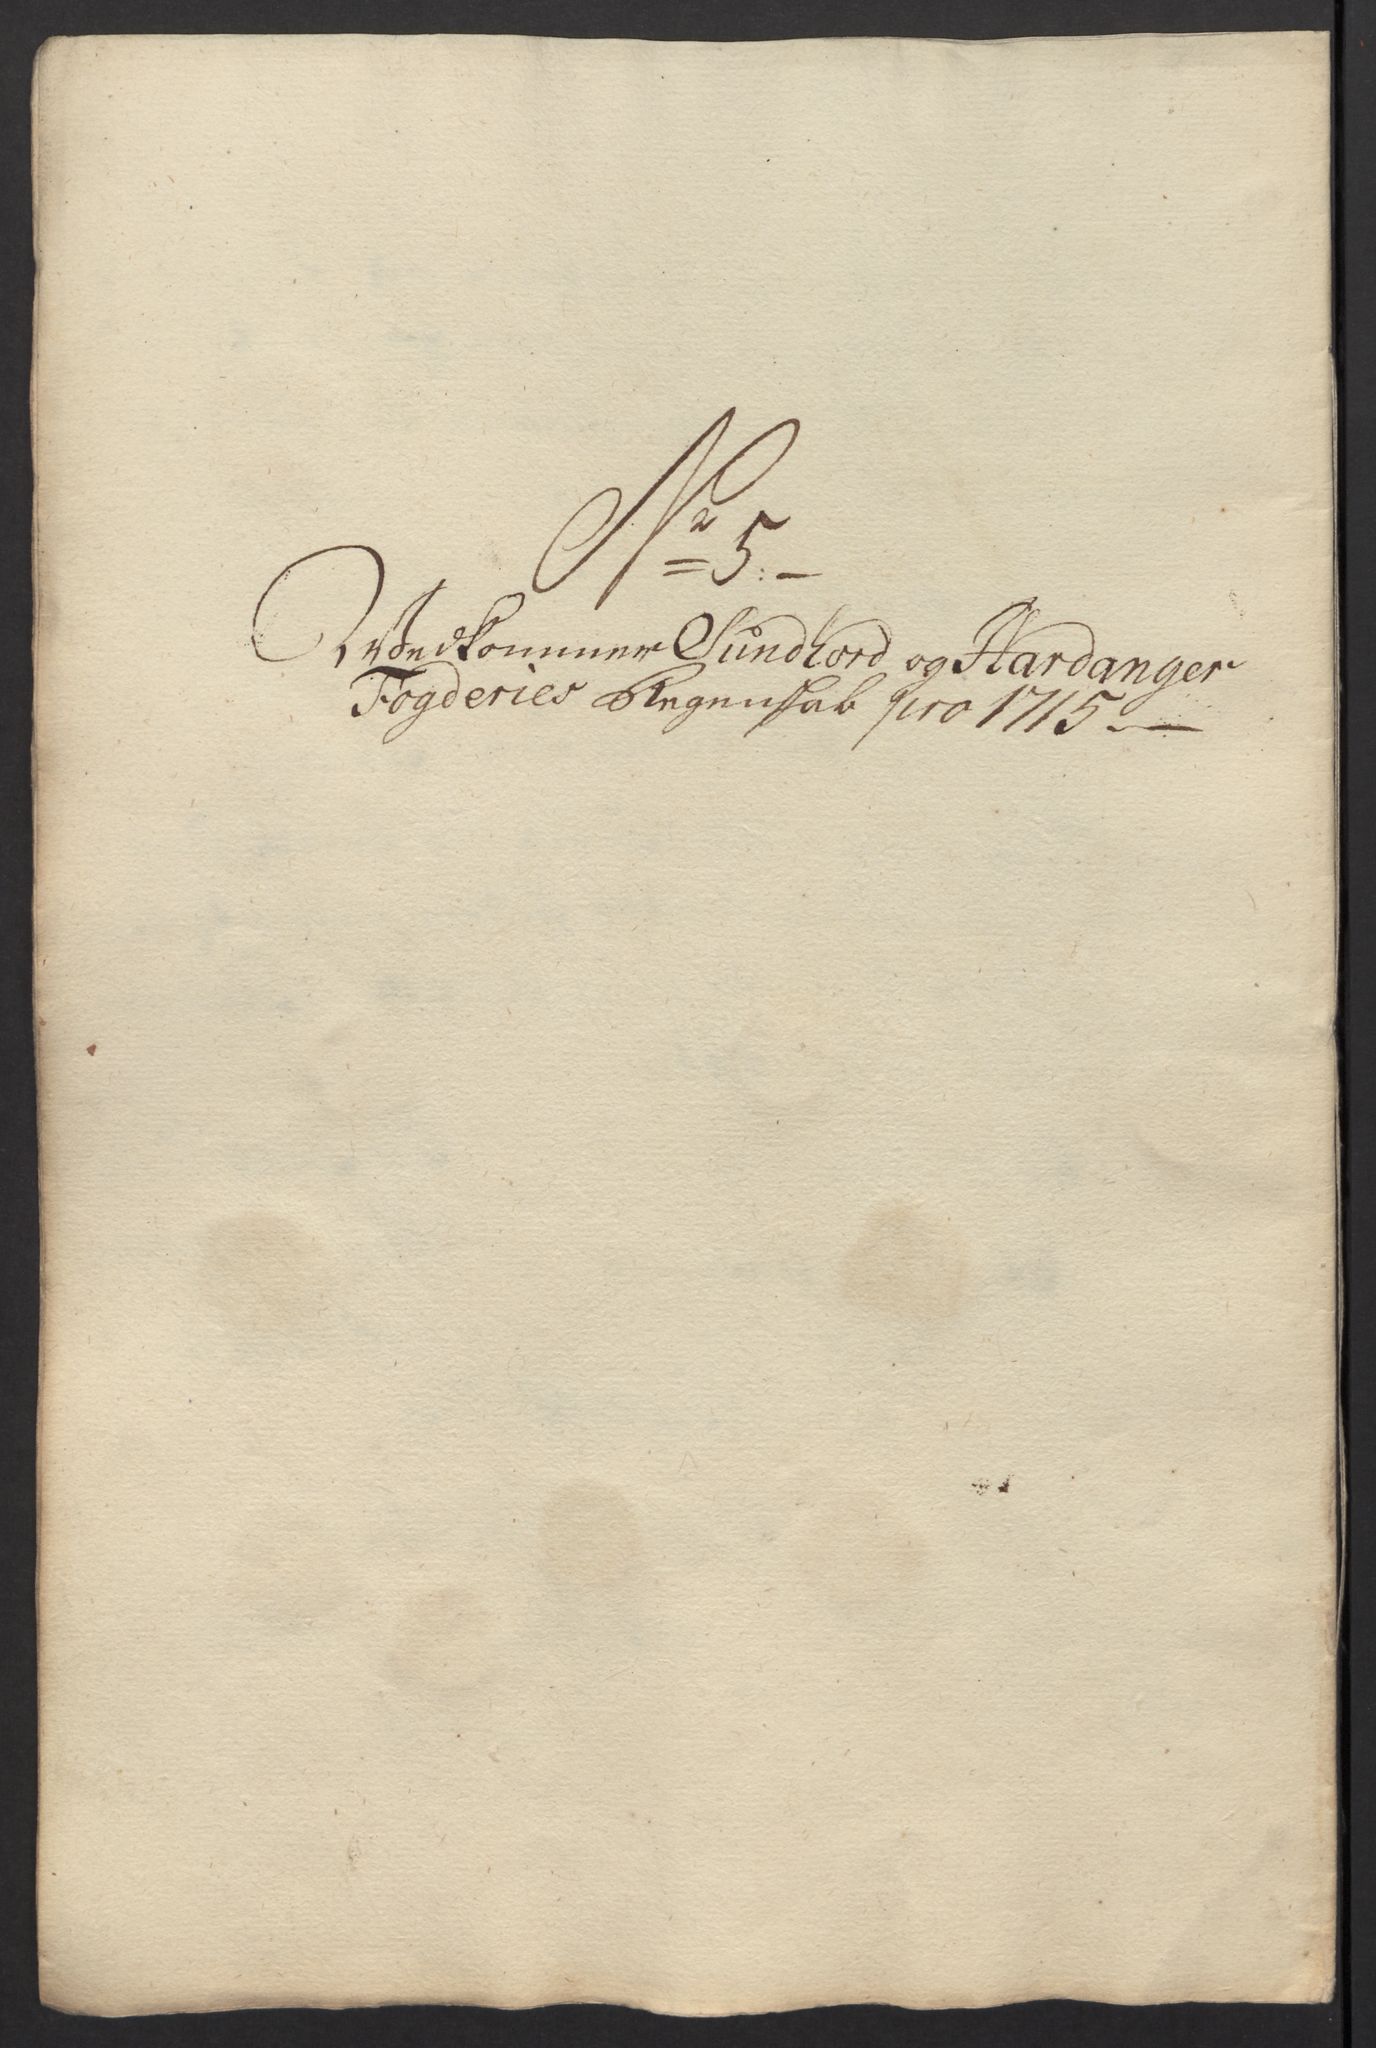 No 5:—
Wedkommer Sundhord og Hardanger
Fogderies Regenskab pro 1715.—